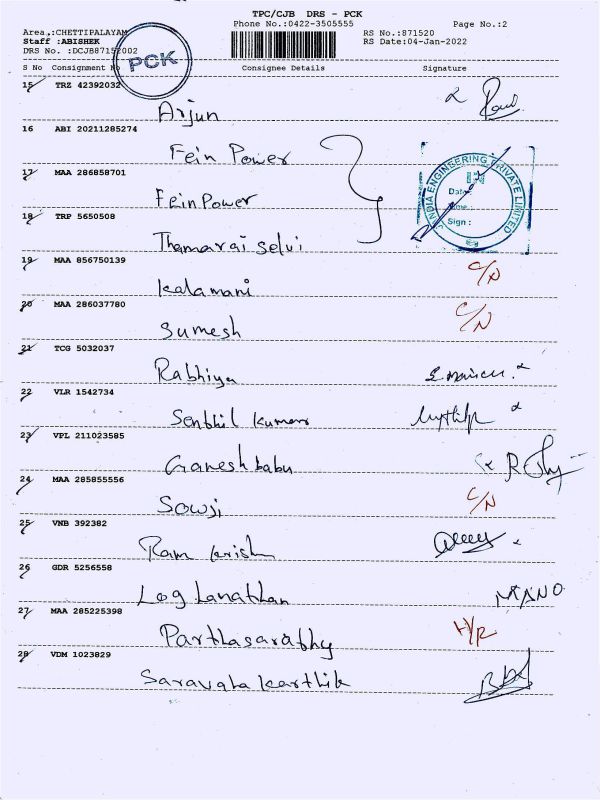 TPC/CJB DRS - PCK
Phone No.:0422-3505555 Page No.:2
Area,:CHETTIPALAYAM RS No.:871520
Staff :ABISHEK RS Date:04-Jan-2022
DRS No. :DCJB87152002
PCK
S No Consignment No Consignee Details Signature
15 TRZ 42392032
Arjun
16 ABI 20211285274
Fein Power
17 MAA 286858701
Fein Power
INDIA ENGINEERING PRIVATE LIMITED
Date
Sign :
18 TRP 5650508
Thamarai Selvi
19 MAA 856750139 C/N
Kalamani
20 MAA 286037780 C/N
Sumesh
21 TCG 5032037
Rabhiya
22 VLR 1542734
Senthil Kumar
23 VPL 211023585
Ganesh babu
24 MAA 285855556 C/N
Sowji
25 VNB 392382
Ram Krish
26 GDR 5256558
Loganathan MANO
27 MAA 285225398 H/R
Parthasarathy
28 VDM 1023829
Saravana Karthik